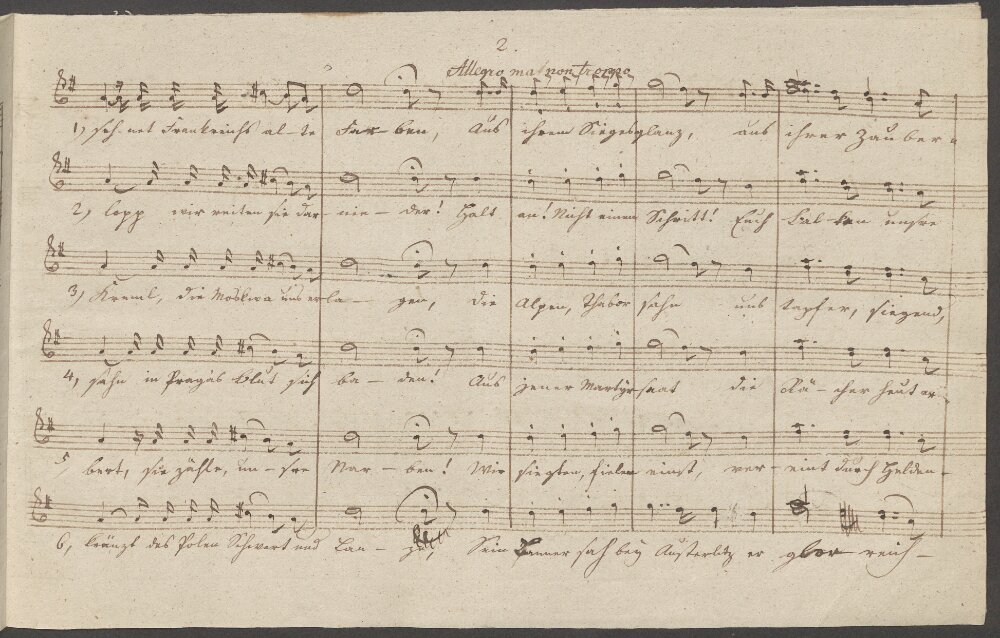 2.
Allegro ma non troppo
1, seh-net Frankreichs al-te Far-ben, Aus ihrem Siegesglanz, aus ihrer Zauber-
2, lopp wir reiten sie dar-nie-der! Halt an! Nicht einen Schritt! Euch unsre
3, Kreml, die Moskwa uns erla-gen, die Alpen, Thabor sahn uns tapfer, siegend,
4, sahn in Pragas Blut sich ba-den! Aus jener Martyrsaat die Rä-cher heut er-
5 bert, sie zähle, un-sre Nar-ben! Wir siegten, fielen einst, ver-eint durch Helden-
6, kränzt des Polen Schwert und Lan-ze, Sein Banner sah bey Austerlitz er glor reich-